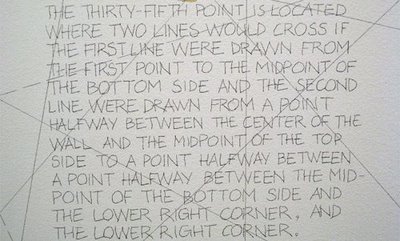 THE THIRTY-FIFTH POINT IS LOCATED
WHERE TWO LINES WOULD CROSS IF
THE FIRST LINE WERE DRAWN FROM
THE FIRST POINT TO THE MIDPOINT OF
THE BOTTOM SIDE AND THE SECOND
LINE WERE DRAWN FROM A POINT
HALFWAY BETWEEN THE CENTER OF THE
WALL AND THE MIDPOINT OF THE TOP
SIDE TO A POINT HALFWAY BETWEEN
A POINT HALFWAY BETWEEN THE MID-
POINT OF THE BOTTOM SIDE AND
THE LOWER RIGHT CORNER, AND
THE LOWER RIGHT CORNER.